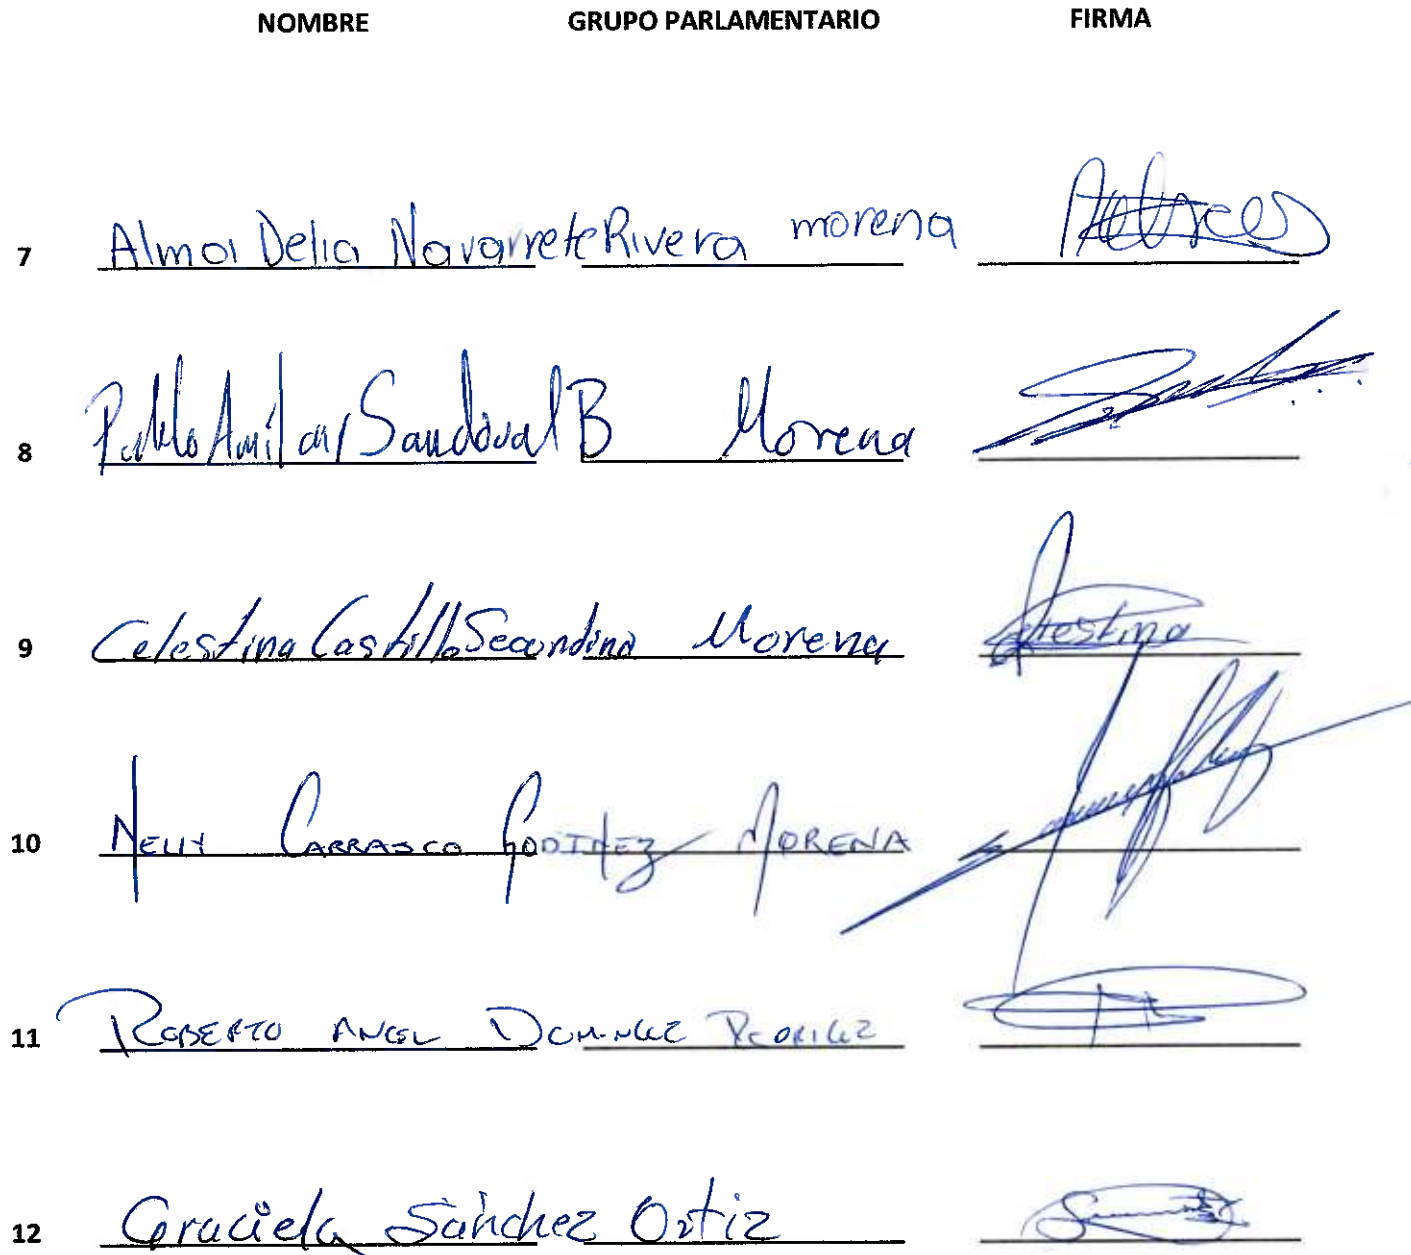 NOMBRE GRUPO PARLAMENTARIO FIRMA
7 Alma Delia Navarrete Rivera morena
8 Pablo Amilcar Sandoval B Morena
9 Celestina Castillo Secundino Morena Celestina
10 NELLY CARRASCO GODINEZ MORENA
11 ROBERTO ANGEL DOMINGUEZ RODRIGUEZ
12 Graciela Sánchez Ortiz